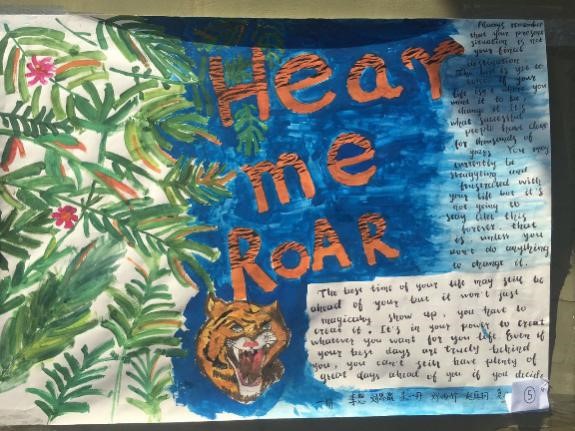 Hear
me
ROAR
Always remember
that your present
situation is not
your final
destination
The best is yet to
come. If your
life isn't where you
want it to be
change it. It's
what successful
people have done
for thousands of
years. You may
currently be
struggling and
frustrated with
your life but it's
not going to
stay like this
forever. that
is, unless you
won't do anything
to change it.
The best time of your life may still be
ahead of your but it won't just
magically show up, you have to
creat it. It's in your power to creat
whatever you want for you life. Even if
your best days are truely behind
you, you can't still have plenty of
great days ahead of you if you decide
5